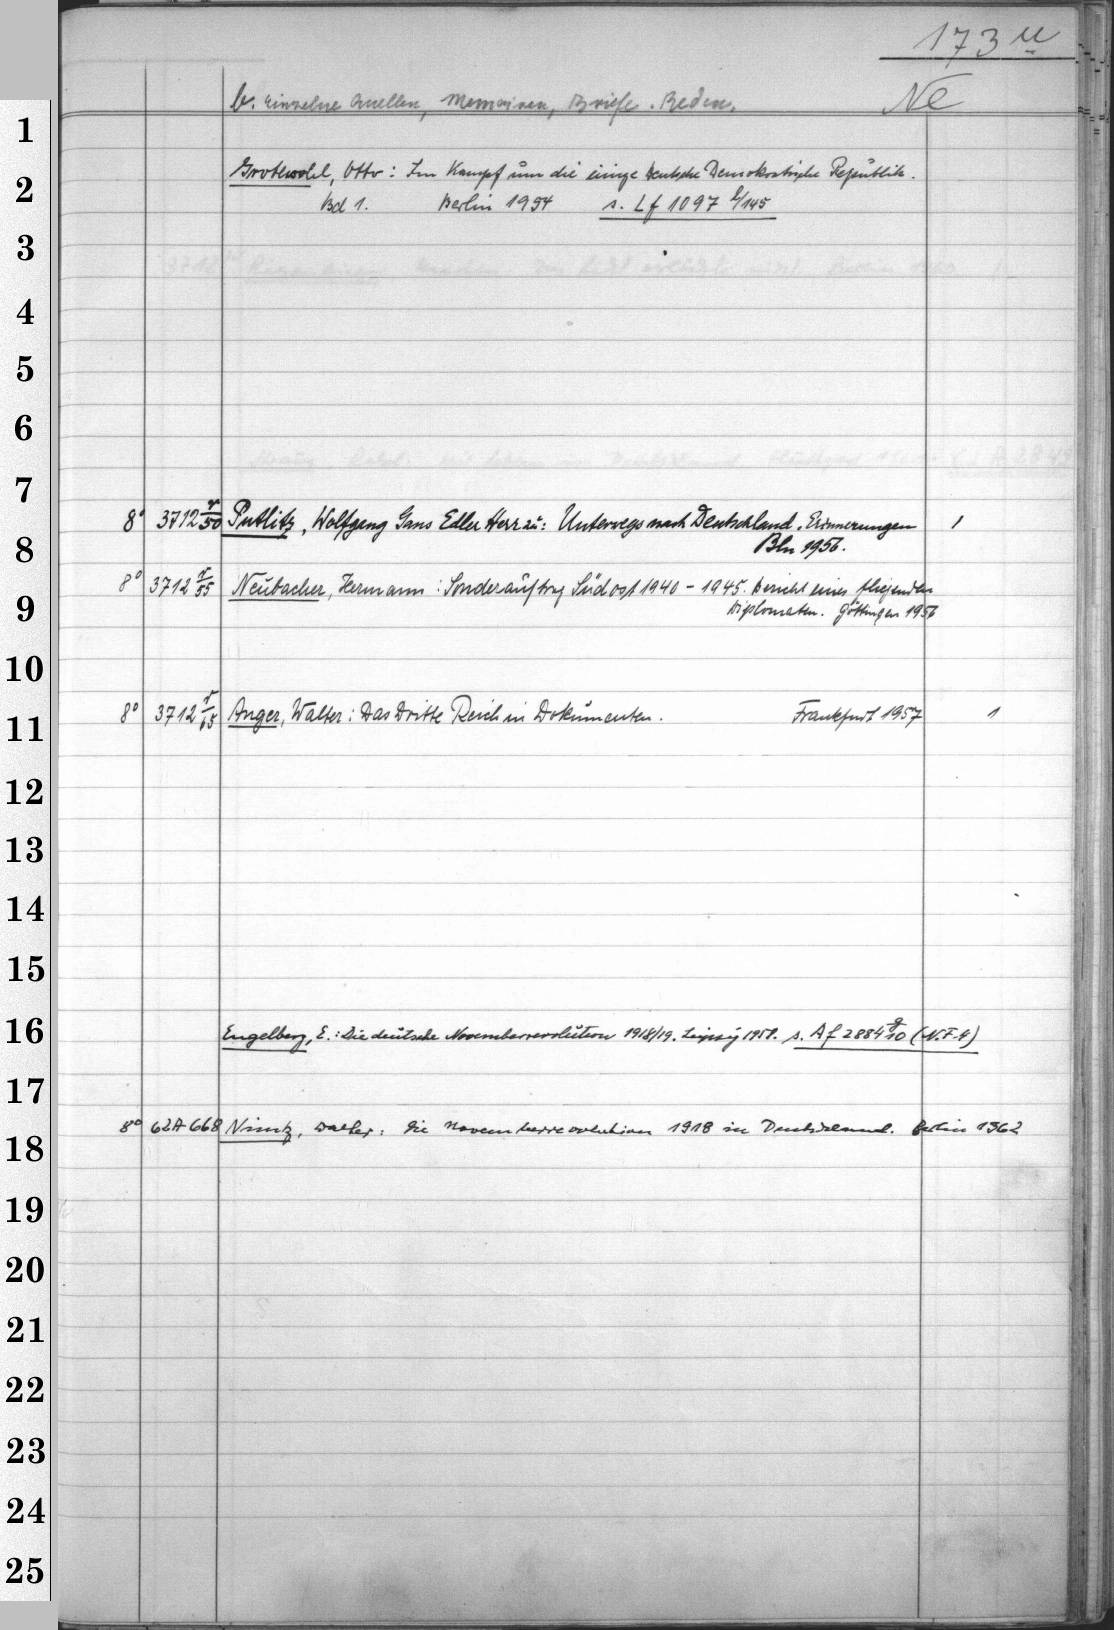 173 u
b. Einzelne Quellen, Memoiren, Briefe. Reden.
Ne
1
2
3
4
5
6
7
8
9
10
11
12
13
14
15
16
17
18
19
20
21
22
23
24
25
Grotewohl, Otto: Im Kampf um die einige Deutsche Demokratische Republik.
Bd 1. Berlin 1954 s. Lf 1097 l/145
8° 3712 r/50 Putlitz, Wolfgang Gans Edler Herr zu: Unterwegs nach Deutschland. Erinnerungen 1
Bln 1956.
8° 3712 r/55 Neubacher, Hermann: Sonderauftrag Südost 1940 - 1945. Bericht eines fliegenden
Diplomaten. Göttingen 1956
8° 3712 r/65 Anger, Walter: Das Dritte Reich in Dokumenten. Frankfurt 1957 1
Engelberg, E.: Die deutsche Novemberrevolution 1918/19. Leipzig 1958. s. Af 2884 g/10 (N.F.4)
8° 62A 668 Nimtz, Walter: Die Novemberrevolution 1918 in Deutschland. Berlin 1962